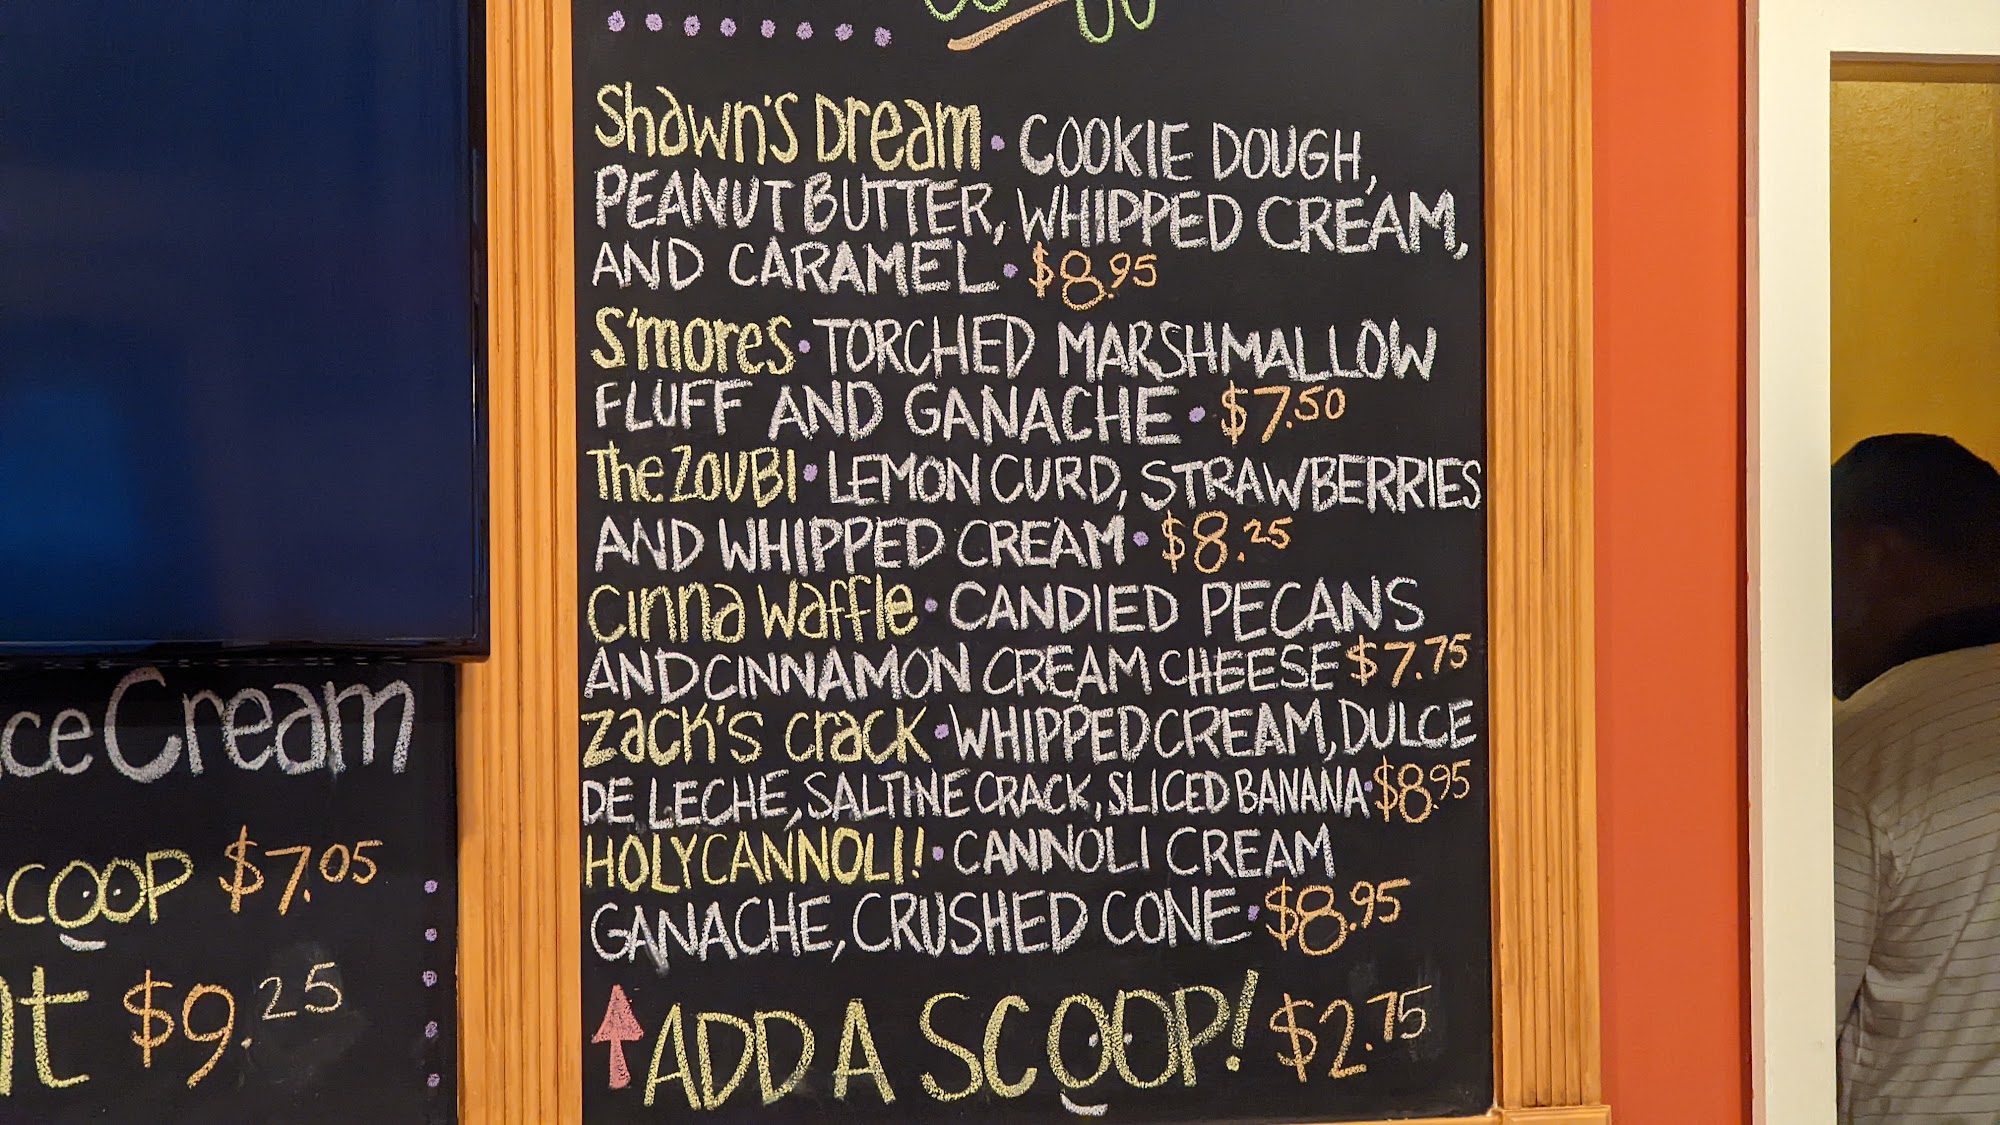 Shawn's Dream • COOKIE DOUGH,
PEANUT BUTTER, WHIPPED CREAM,
AND CARAMEL • $8.95
S'mores • TORCHED MARSHMALLOW
FLUFF AND GANACHE • $7.50
The ZOUBI • LEMON CURD, STRAWBERRIES
AND WHIPPED CREAM • $8.25
cinna waffle • CANDIED PECANS
AND CINNAMON CREAM CHEESE $7.75
zack's crack • WHIPPED CREAM, DULCE
DE LECHE, SALTINE CRACK, SLICED BANANA • $8.95
HOLY CANNOLI! • CANNOLI CREAM
GANACHE, CRUSHED CONE • $8.95
ADD A SCOOP! $2.75
ice Cream
SCOOP $7.05
$9.25